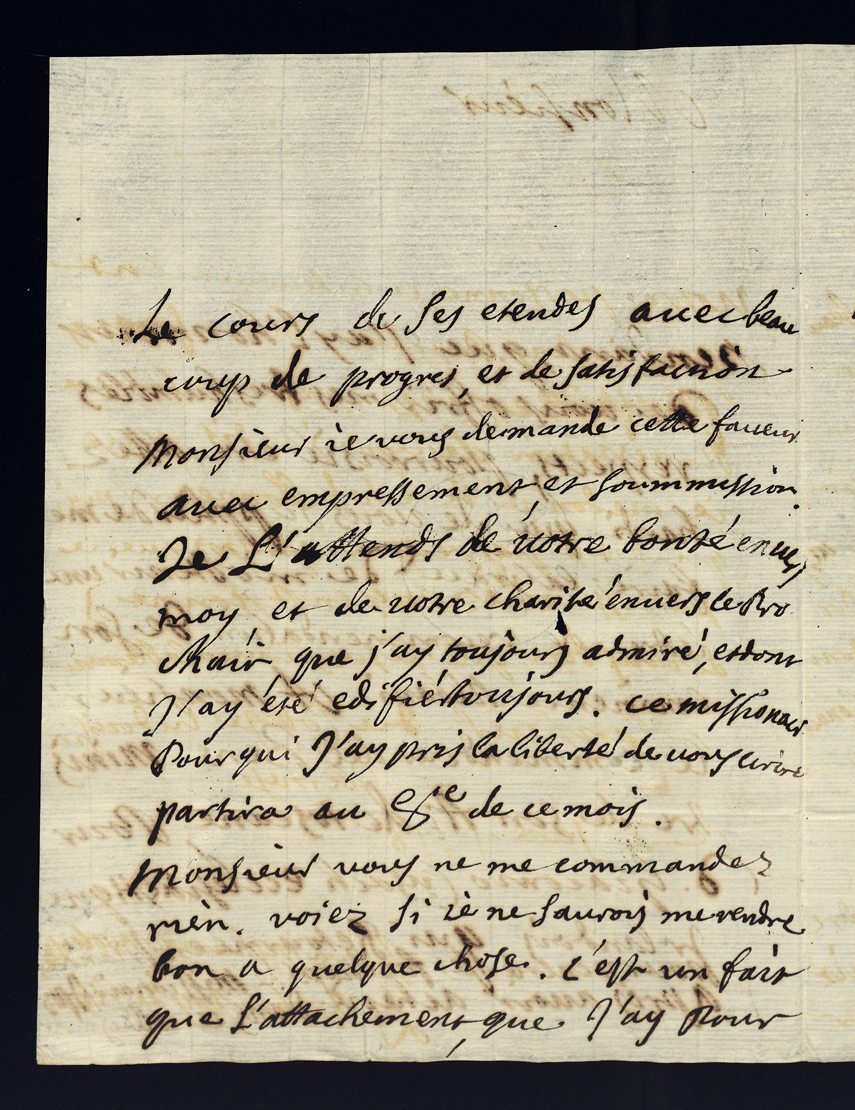 Le cours de ses etendes avec beau
coup de progres, et de satisfaction
Monsieur ie vous demande cette faveur
avec empressement et soummission.
Je L'attends de votre bonté envers
moy, et de votre charité envers le Pro
chain que j'ay toujours admiré, et dont
J'ay été edifié toujours. ce missionair
Pour qui J'ay pris la liberté de vous ecrire
partira au 8e de ce mois.
Monsieur vous ne me commandez
rièn. voiez si ie ne saurois me rendre
bon a quelque chose. c'est un fait
que L'attachement, que J'ay Pour